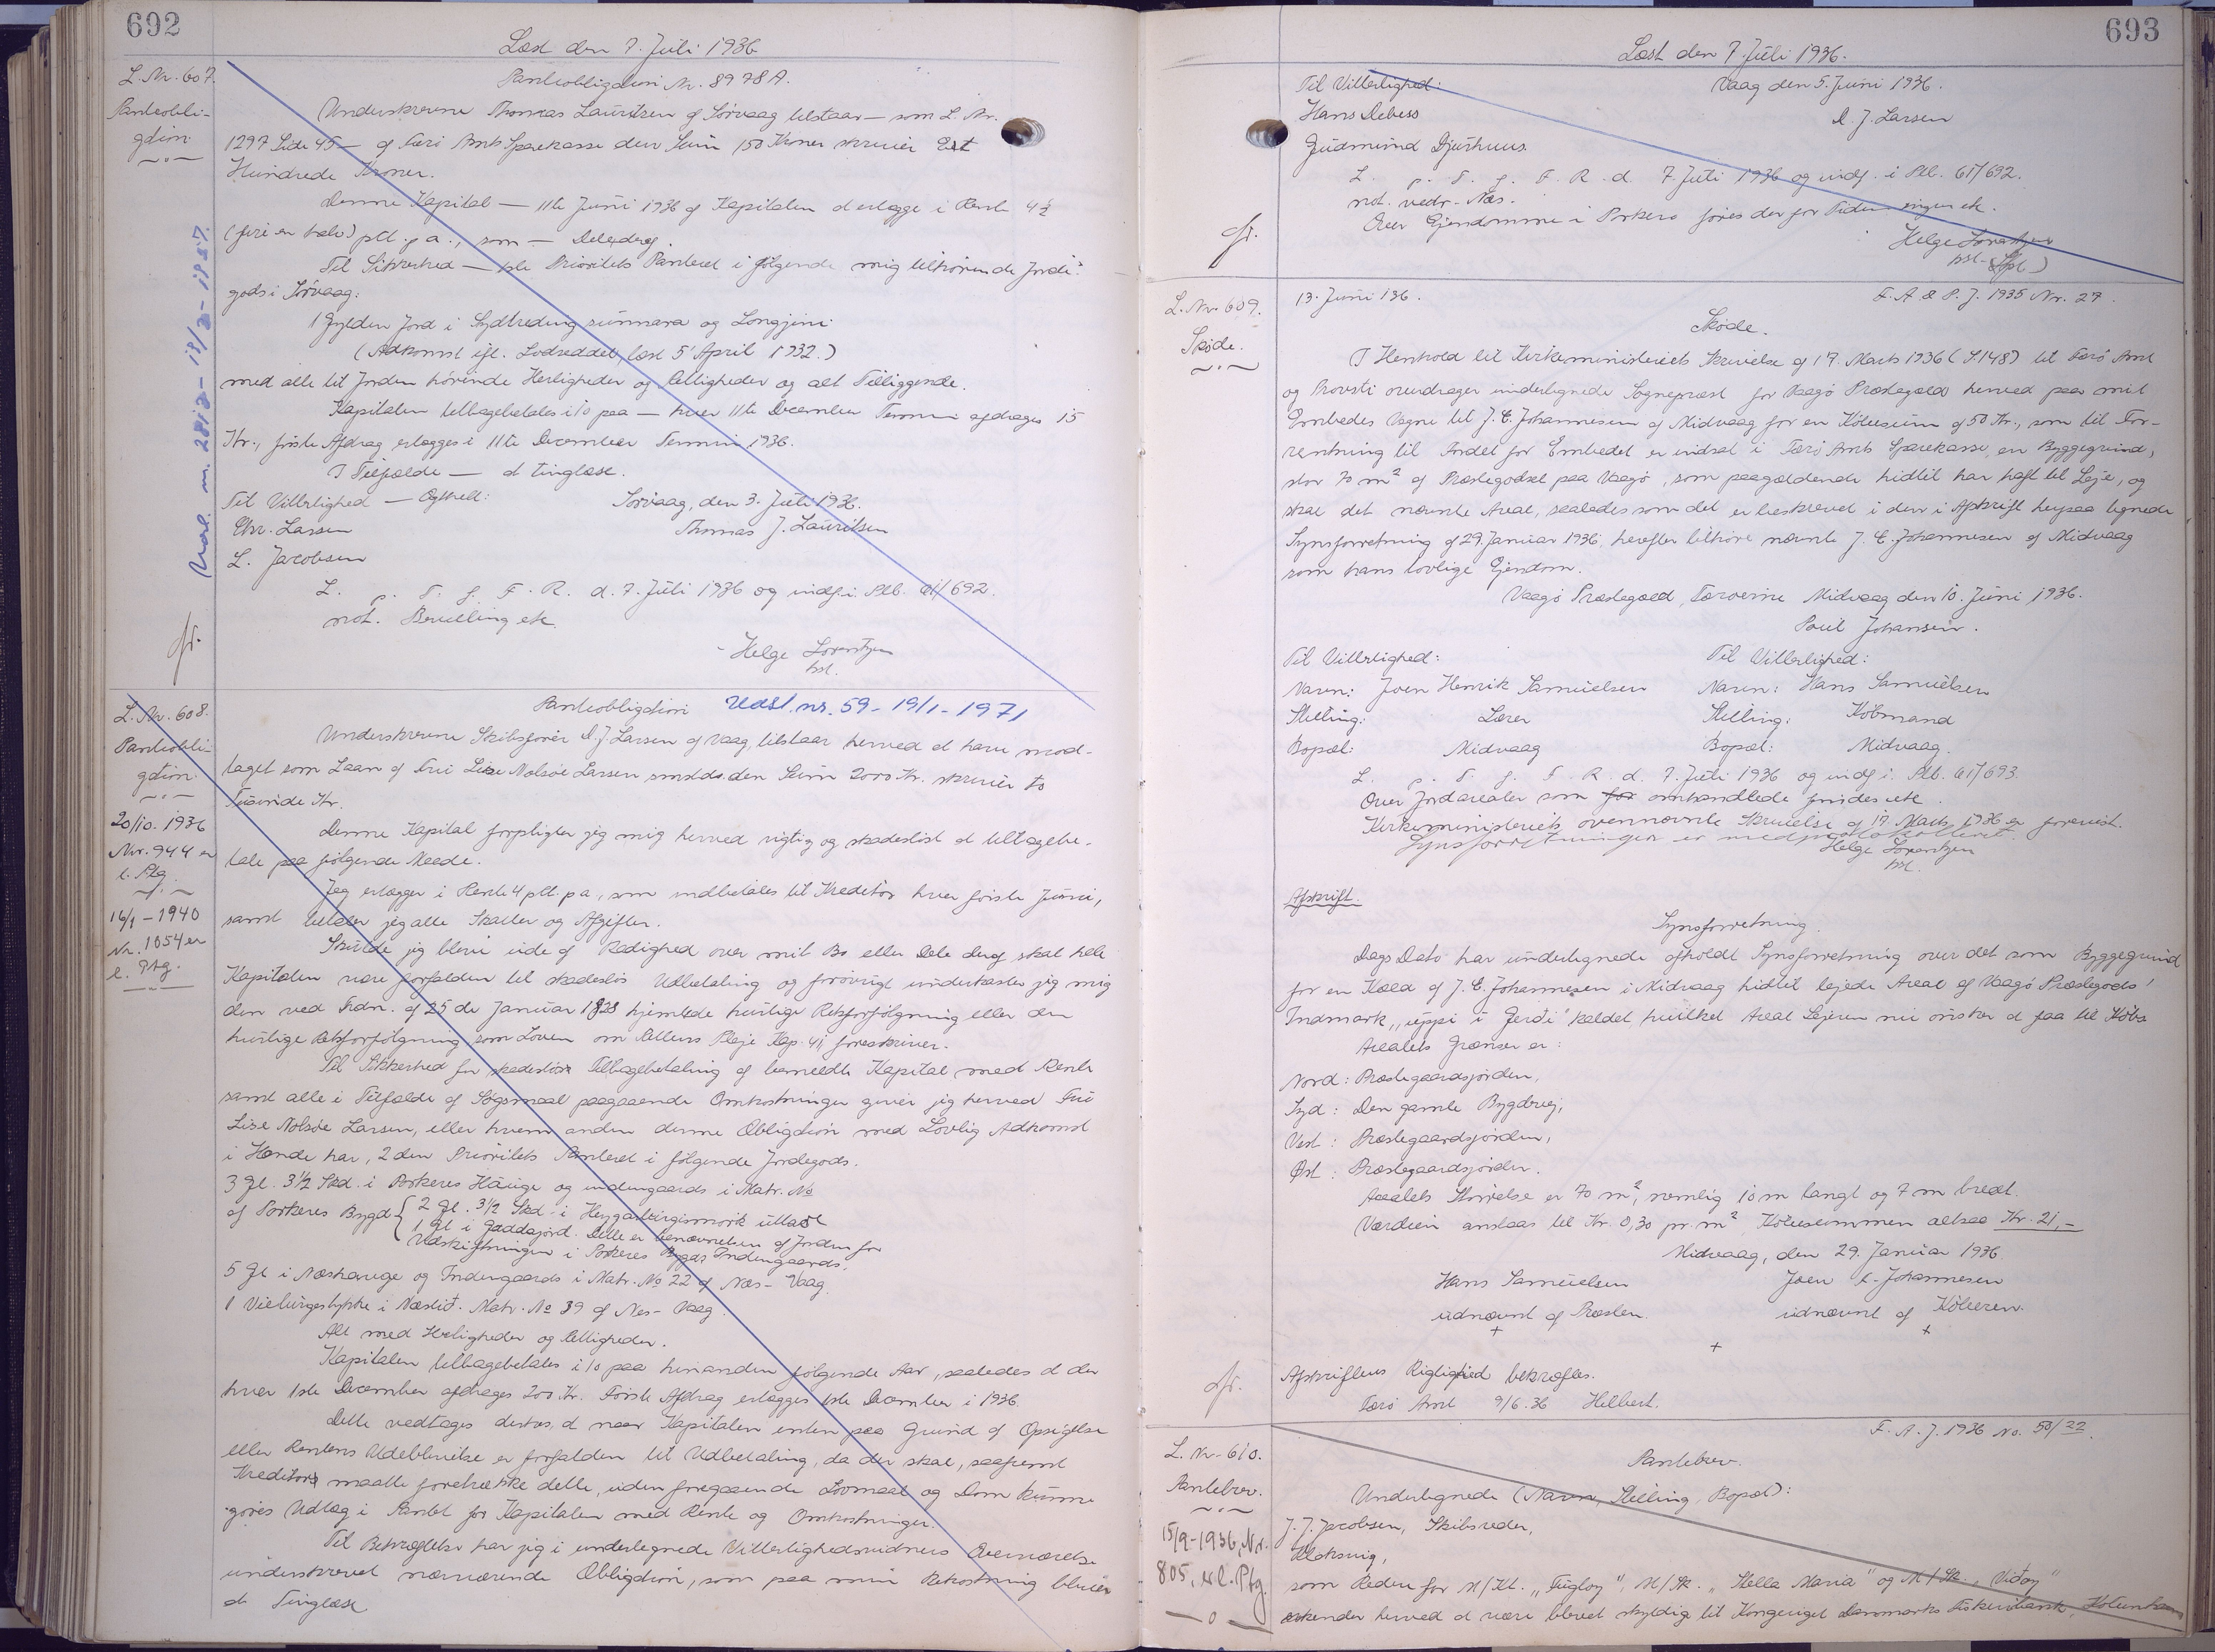 692
Læst den 7. Juli 1936
L. Nr. 607.
Panteobli-
gation.
Panteobligation Nr. 8978 A.
Underskrevne Thomas Lauritsen af Sörvaag tilstaar — som L. Nr.
1297 Side 45 — af Færö Amts Sparekasse den Sum 150 Kroner skriver Et
Hundrede Kroner.
Denne Kapital — 11te Juni 1936 af Kapitalen at erlægge i Rente 4½
(fire en halv) pCt. p a., som — Deleydrag.
Til Sikkerhed — 1ste Prioritets Panteret i fölgende mig tilhörende Jorde-
gods i Sörvaag:
1 Gylden Jord i Sydtreding sunnara og Longjini
(Adkomst ifl. Lodseddel, læst 5' April 1932.)
med alle til Jorden hörende Herligheder og Rettigheder og alt Tilliggende.
Kapitalen tilbagebetales i 10 paa — hver 11te December Termin afdrages 15
Kr., förste Afdrag erlægges i 11te December Termin 1936.
I Tilfælde — at tinglæse.
Til Vitterlighed — Egtheit:
Sörvaag, den 3. Juli 1936.
Chr. Larsen
Thomas J. Lauritsen
L. Jacobsen
L. p. T. f. F. R. d. 7. Juli 1936 og indf. i Ptb. 61/692.
not. Bevilling etc.
Helge Lorentzen
hst.
Uasl. nr. 281 a - 13/3 - 1957.
L. Nr. 608.
Panteobli-
gation.
20/10. 1936
Nr. 944 er
l. Ptg.
16/1 - 1940
Nr. 1054 er
l. Ptg.
Panteobligation Udsl. nr. 59 - 19/1 - 1971
Underskrevne Skibsförer D. J. Larsen af Vaag, tilstaar herved at have mod-
taget som Laan af Frú Lise Nolsöe Larsen smstds. den Sum 2000 Kr. skriver to
Tusinde Kr.
Denne Kapital forpligter jeg mig herved rigtig og skadeslöst at tilbagebe-
tale paa fölgende Maade.
Jeg erlægger i Rente 4 pCt. p a., som indbetales til Kreditor hver förste Juni,
samt betaler jeg alle Skatter og Afgifter.
Skulde jeg blive ude af Raadighed over mit Bo eller Dele deraf skal hele
Kapitalen være forfalden til skadeslös Udbetaling og forövrigt underkaster jeg mig
den ved Frdn. af 25 de Januar 1828 hjemlede hurtige Retsforfölgning eller den
hurtige Retsforfölgning som Loven om Rettens Pleje Kap. 41 foreskriver.
Til Sikkerhed for skadeslös Tilbagebetaling af bemeldte Kapital med Rente
samt alle i Tilfælde af Sögsmaal paagaaende Omkostninger giver jeg herved Frú
Lise Nolsöe Larsen, eller hvem anden denne Obligation med Lovlig Adkomst
i Hænde har, 2 den Prioritets Panteret i fölgende Jordegods.
3 Gl. 3½ Skd. i Porkeres Hauge og indengaards i Matr. No
af Porkeres Bygd { 2 Gl. 3½ Skd. i Heygabirgismørk uttast
1 Gl i Gaddajord. Dette er benævnelsen af Jorden for
Udskiftningen i Porkeres Bygds Indengaards.
5 Gl i Næshauge og Indengaards i Matr. No 22 af Næs - Vaag.
1 Vielingestykke i Næslid. Matr. No 39 af Nes - Vaag.
Alt med Herligheder og Rettigheder.
Kapitalen tilbagebetales i 10 paa hinanden fölgende Aar, saaledes at der
hver 1ste December afdrages 200 Kr. Förste Afdrag erlægges 1ste December i 1936.
Dette vedtages derhos, at naar Kapitalen enten paa Grund af Opsigelse
eller Rentens Udeblivelse er forfalden til Udbetaling, da der skal, saafremt
Kreditor maatte foretrække dette, uden foregaaende Lovmaal og Dom kunne
göres Udlæg i Pantet for Kapitalen med Rente og Omkostninger.
Til Bekræftelse har jeg i undertegnede Vitterlighedsvidners Overværelse
underskrevet nærværende Obligation, som paa min Bekostning bliver
at Tinglæse
693
Læst den 7 Juli 1936.
Til Vitterlighed:
Vaag den 5. Juni 1936.
Hans Debess
D. J. Larsen
Gudmund Djurhuus.
L. p. T. f. F. R. d. 7 Juli 1936 og indf. i Ptb. 61/692.
not. vedr. Næs.
Over Ejendomme i Porkere föres der for Tiden ingen etc.
Helge Lorentzen
hst.
L. Nr. 609.
Sköde.
13. Juni 136.
F. A. & P. J. 1935 Nr. 27.
Sköde.
I Henhold til Kirkeministeriets Skrivelse af 17. Marts 1936 (S 148) til Færö Amt
og Provsti overdrager undertegnede Sognepræst for Vaagö Præstegæld herved paa mit
Embedes Vegne til J. E. Johannesen af Midvaag for en Købesum af 50 Kr., som til For-
rentning til Fordel for Embedet er indsat i Færö Amts Sparekasse, en Byggegrund,
stor 70 m² af Præstegodset paa Vaagö, som paagældende hidtil har haft til Leje, og
skal det nævnte Areal, saaledes som det er beskrevet i den i Afskrift herpaa tegnede
Synsforretning af 29. Januar 1936, herefter tilhöre nævnte J. E. Johannesen af Midvaag
som hans lovlige Ejendom.
Vaagö Præstegæld, Færöerne Midvaag den 10. Juni 1936.
Poul Johansen.
Til Vitterlighed:
Til Vitterlighed:
Navn: Joen Henrik Samuelsen
Navn: Hans Samuelsen
Stilling: Lærer
Stilling: Köbmand
Bopæl: Midvaag
Bopæl: Midvaag.
L. p. T. f. F. R. d. 7. Juli 1936 og indf. i Ptb. 61/693.
Over Jordarealer som for omhandlede findes etc.
Kirkeministeriets ovennævnte Skrivelse af 17. Marts 1936 er forevist.
Synsforretningen er medprotokolleret.
Helge Lorentzen
hst.
Afskrift.
Synsforretning.
Dags Dato har undertegnede afholdt Synsforretning over det som Byggegrund
for en Kæld af J. E. Johannesen i Midvaag hidtil lejede Areal af Vaagö Præstegods'
Indmark „uppi i Gerði" kaldet, hvilket Areal Lejeren nu önsker at faa til Købs
Arealets Grænser er:
Nord: Præstegaardsjorden,
Syd: Den gamle Bygdevej,
Vest: Præstegaardsjorden,
Öst: Præstegaardsjorden.
Arealets Störrelse er 70 m², nemlig 10 m langt og 7 m bredt.
Værdien anslaas til Kr. 0,30 pr. m². Købesummen altsaa Kr. 21,-
Midvaag, den 29. Januar 1936.
Hans Samuelsen
Joen E. Johannesen
udnævnt af Præsten.
udnævnt af Köberen.
Afskriftens Rigtighed bekræftes.
Færö Amt 9/6.36 Hilbert.
F. A. J. 1936 No. 50/22.
L. Nr. 610.
Pantebrev.
15/9 - 1936, Nr.
805, er l. Ptg.
Pantebrev.
Undertegnede (Navn, Stilling, Bopæl):
J. J. Jacobsen, Skibsreder,
Klaksvig,
som Reder for M/Kt. „Fugloy", M/Sk. „Stella Maria" og M/Sk. „Viðoy"
erkender herved at være blevet skyldig til Kongeriget Danmarks Fiskeribank, Kobenhavn